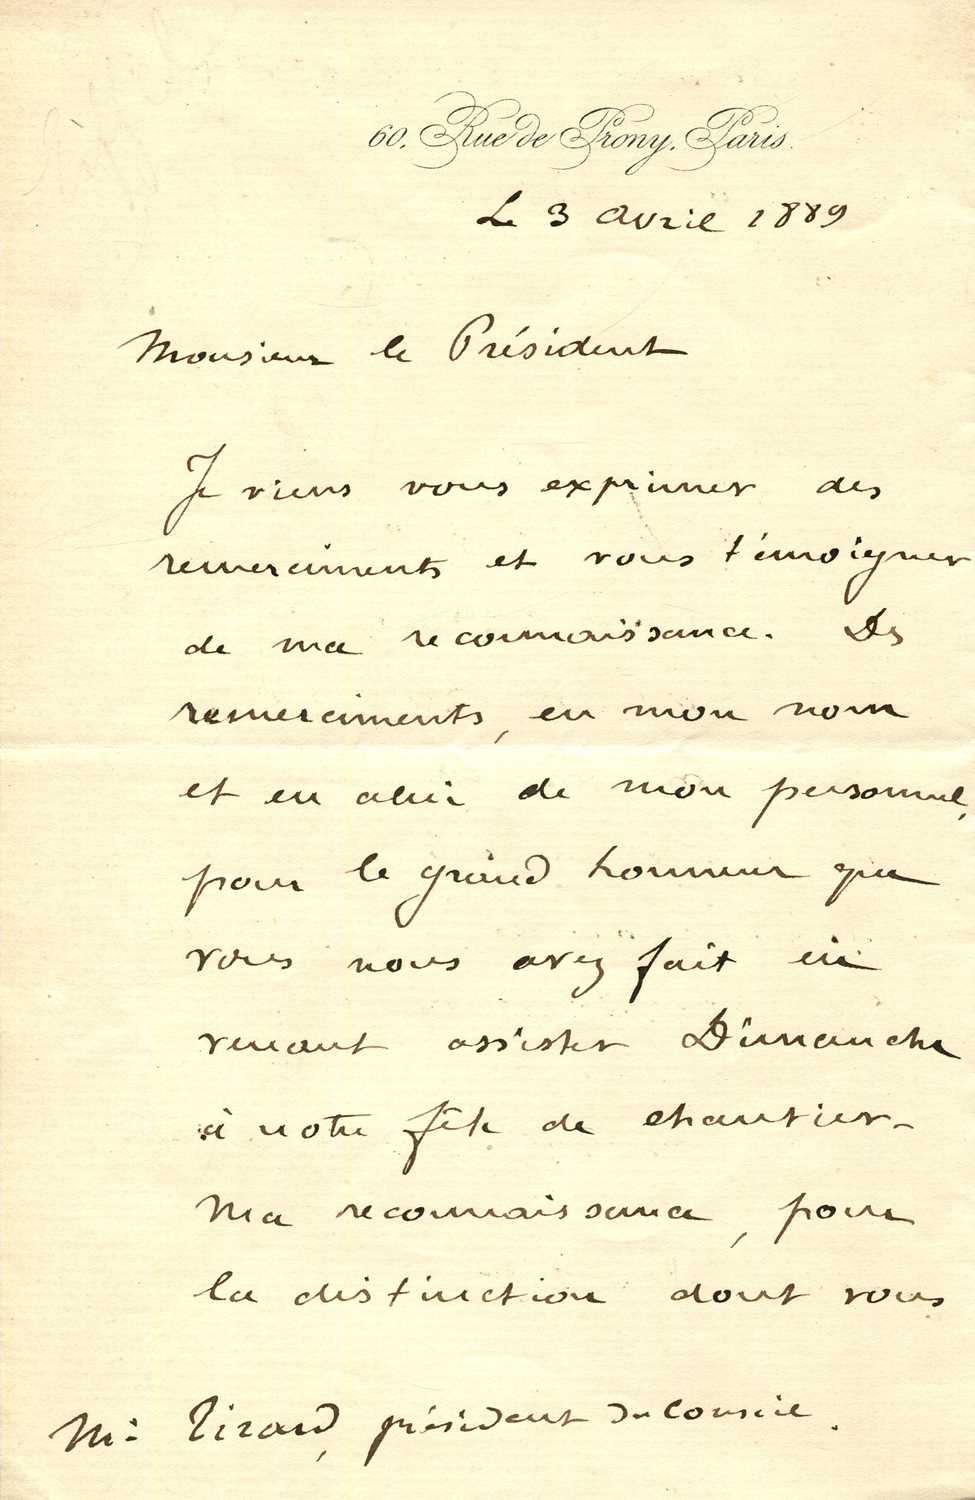 60, Rue de Prony, Paris.
Le 3 Avril 1889
Monsieur le Président
Je viens vous exprimer des
remerciments et vous témoigner
de ma reconnaissance. Des
remerciments, en mon nom
et en celui de mon personnel,
pour le grand honneur que
vous nous avez fait en
venant assister Dimanche
à notre fête de chantier.
Ma reconnaissance, pour
la distinction dont vous
Mr Tirard, président du Conseil.